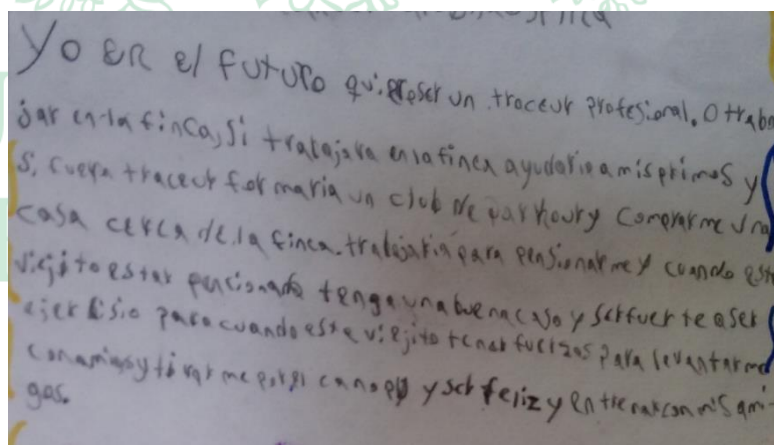 Yo en el futuro quiero ser un traceur profesional. O traba
jar en la finca, si trabajara en la finca ayudaria a mis primos y
si fuera traceur formaria un club de parkour y comprarme una
casa cerca de la finca. trabajaria para pensionarme y cuando este
viejito estar pencionado tenga una buena casa y ser fuerte aser
ejersisio para cuando este viejito tener fuerzas para levantarme
y tirarme por el canopy y ser feliz y entrenar con mis ami-
gos.